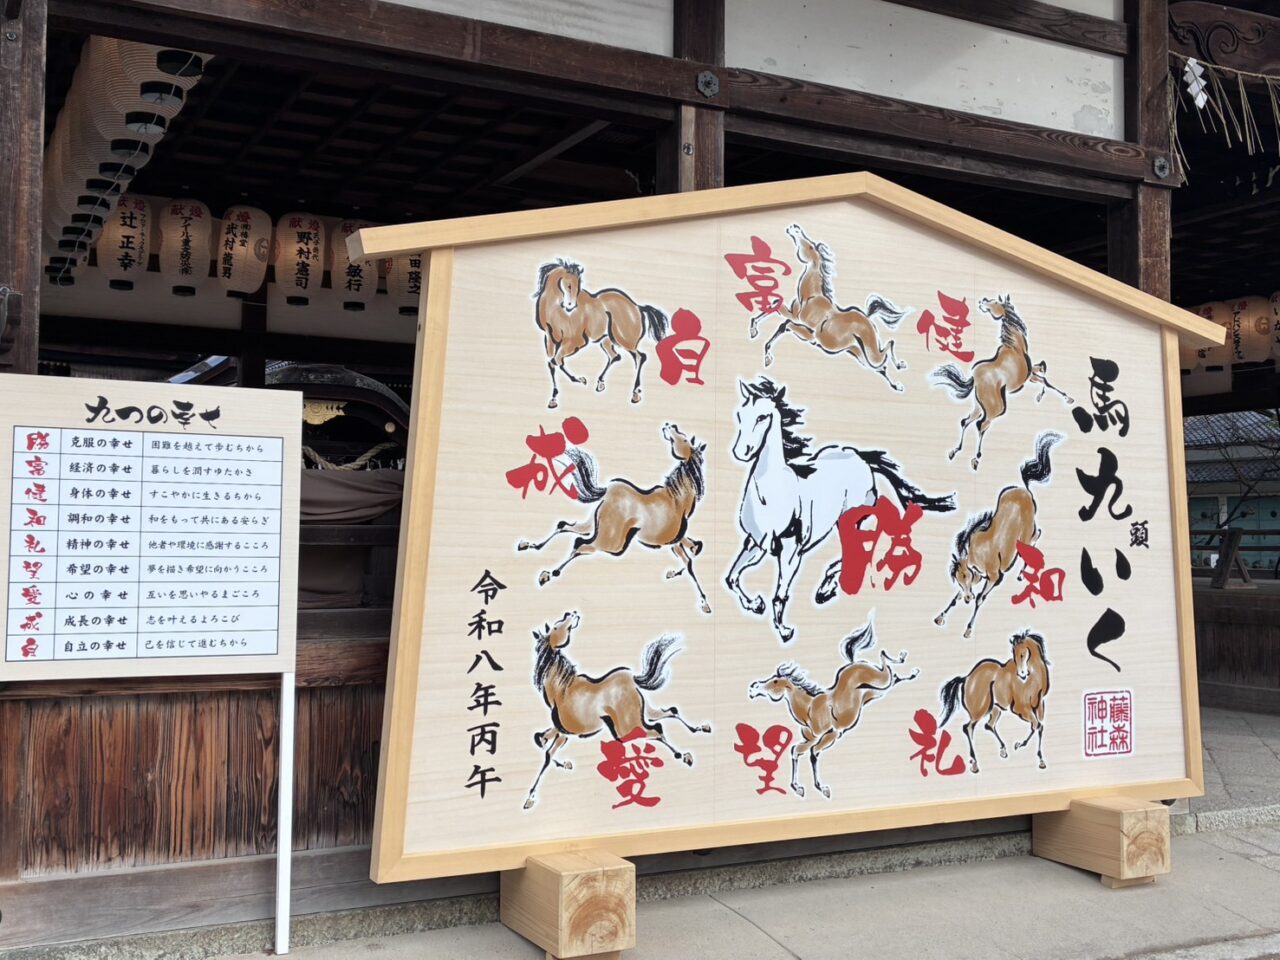 九つの幸せ
勝 克服の幸せ 困難を越えて歩むちから
富 経済の幸せ 暮らしを潤すゆたかさ
健 身体の幸せ すこやかに生きるちから
和 調和の幸せ 和をもって共にある安らぎ
礼 精神の幸せ 他者や環境に感謝するこころ
望 希望の幸せ 夢を描き希望に向かうこころ
愛 心の幸せ 互いを思いやるまごころ
成 成長の幸せ 志を叶えるよろこび
自 自立の幸せ 己を信じて進むちから
馬九頭いく
藤森神社
富
健
自
成
勝
和
愛
望
礼
令和八年丙午
献燈
辻正幸
献燈
献燈
武村龍男
献燈
野村憲司
敏行